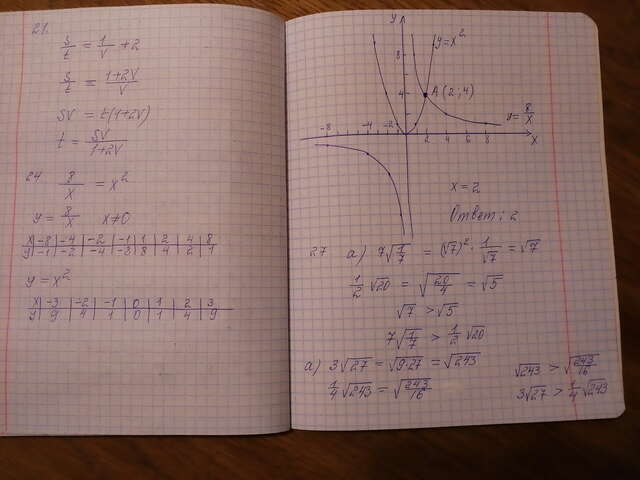 21.
s/t = 1/v + 2
s/t = (1+2v)/v
sv = t(1+2v)
t = sv/(1+2v)
24 8/x = x²
y = 8/x x≠0
x -8 -4 -2 -1 1 2 4 8
y -1 -2 -4 -8 8 4 2 1
y = x²
x -3 -2 -1 0 1 2 3
y 9 4 1 0 1 4 9
y
y=x²
8
4
A(2;4)
y=8/x
-8 -4 -2 2 4 6 8 x
x=2
Ответ: 2
27 а) 7√(1/7) = (√7)²·1/√7 = √7
1/2 √20 = √(20/4) = √5
√7 > √5
7√(1/7) > 1/2 √20
а) 3√27 = √(9·27) = √243
1/4 √243 = √(243/16)
√243 > √(243/16)
3√27 > 1/4 √243